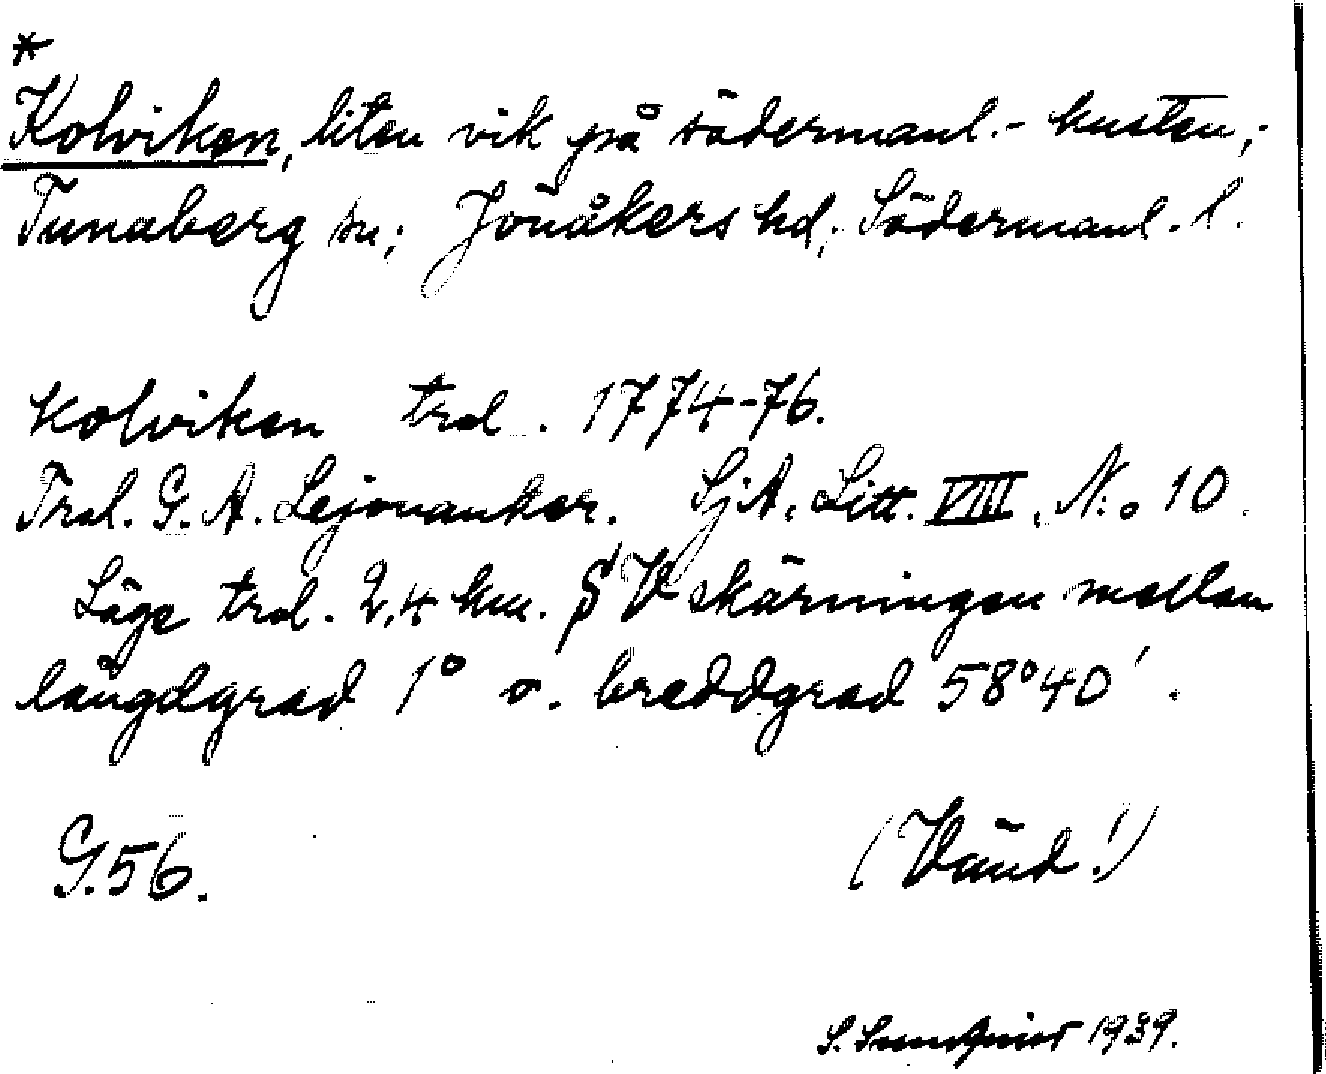 *
Kolviken, liten vik på södermanl.-kusten;
Tunaberg sn; Jönåkers hd; Södermanl. l.
Kolviken trol. 1774-76.
Trol. G. A. Lejonanker. SjA. Litt. VIII. N:o 10.
Läge trol. 2,4 km. SV skärningen mellan
längdgrad 1° o. breddgrad 58°40'.
G.56.
(Vänd!)
S. Sundqvist 1939.